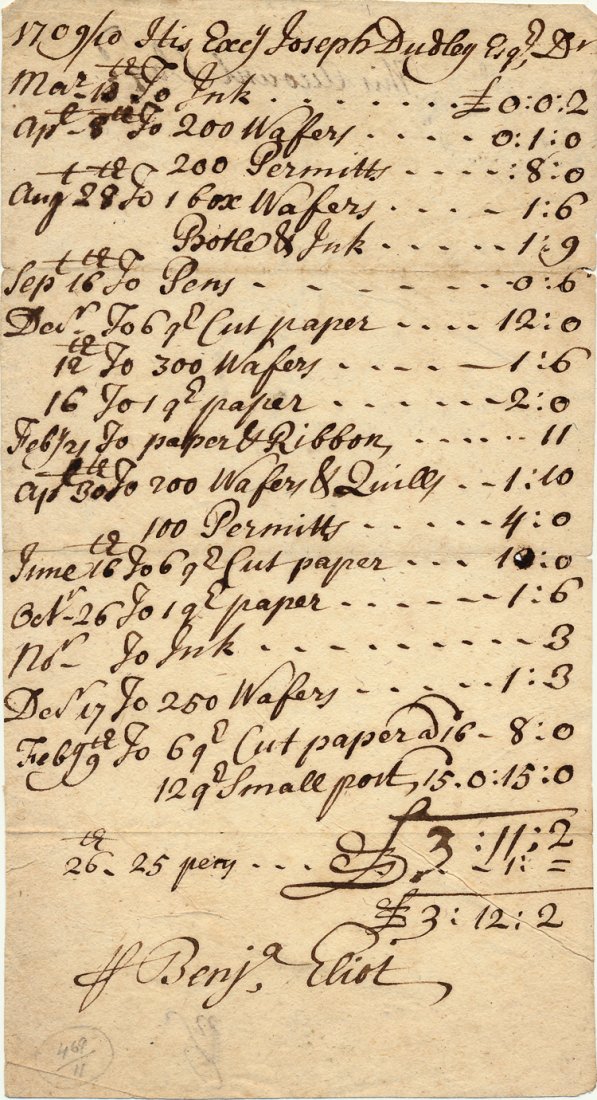 1709/10 His Excy Joseph Dudley Esqr, Dr
Mar 13th To Ink . . . . . . . £0:0:2
Apl 8th To 200 Wafers . . . . 0:1:0
200 Permitts . . . . :8:0
Augt 28th To 1 box Wafers . . . - 1:6
Botle & Ink . . . . 1:9
Sept 16th To Pens - - - - - - - 0:6
Decr To 6 qr Cut paper . . . . 12:0
12th To 300 Wafers . . . . - 1:6
16 To 1 qr paper . . . . - 2:0
Feby 21 To paper & Ribbon, . . . . . 11
Apl 30th To 200 Wafers & Quills . . 1:10
100 Permitts . . . . 4:0
June 16th To 6 qr Cut paper . . . 10:0
Octr 26 To 1 qr paper . . . . . 1:6
Nr To Ink . . . . . . . . . . 3
Decr 17 To 250 Wafers . . . . . 1:3
Feby 9th To 6 qr Cut paper @ 16 - 8:0
12 qr Small post, 15. 0:15:0
£3:11:2
26th 25 pens . . . - 1:=
£3:12:2
Benja. Eliot
469/11